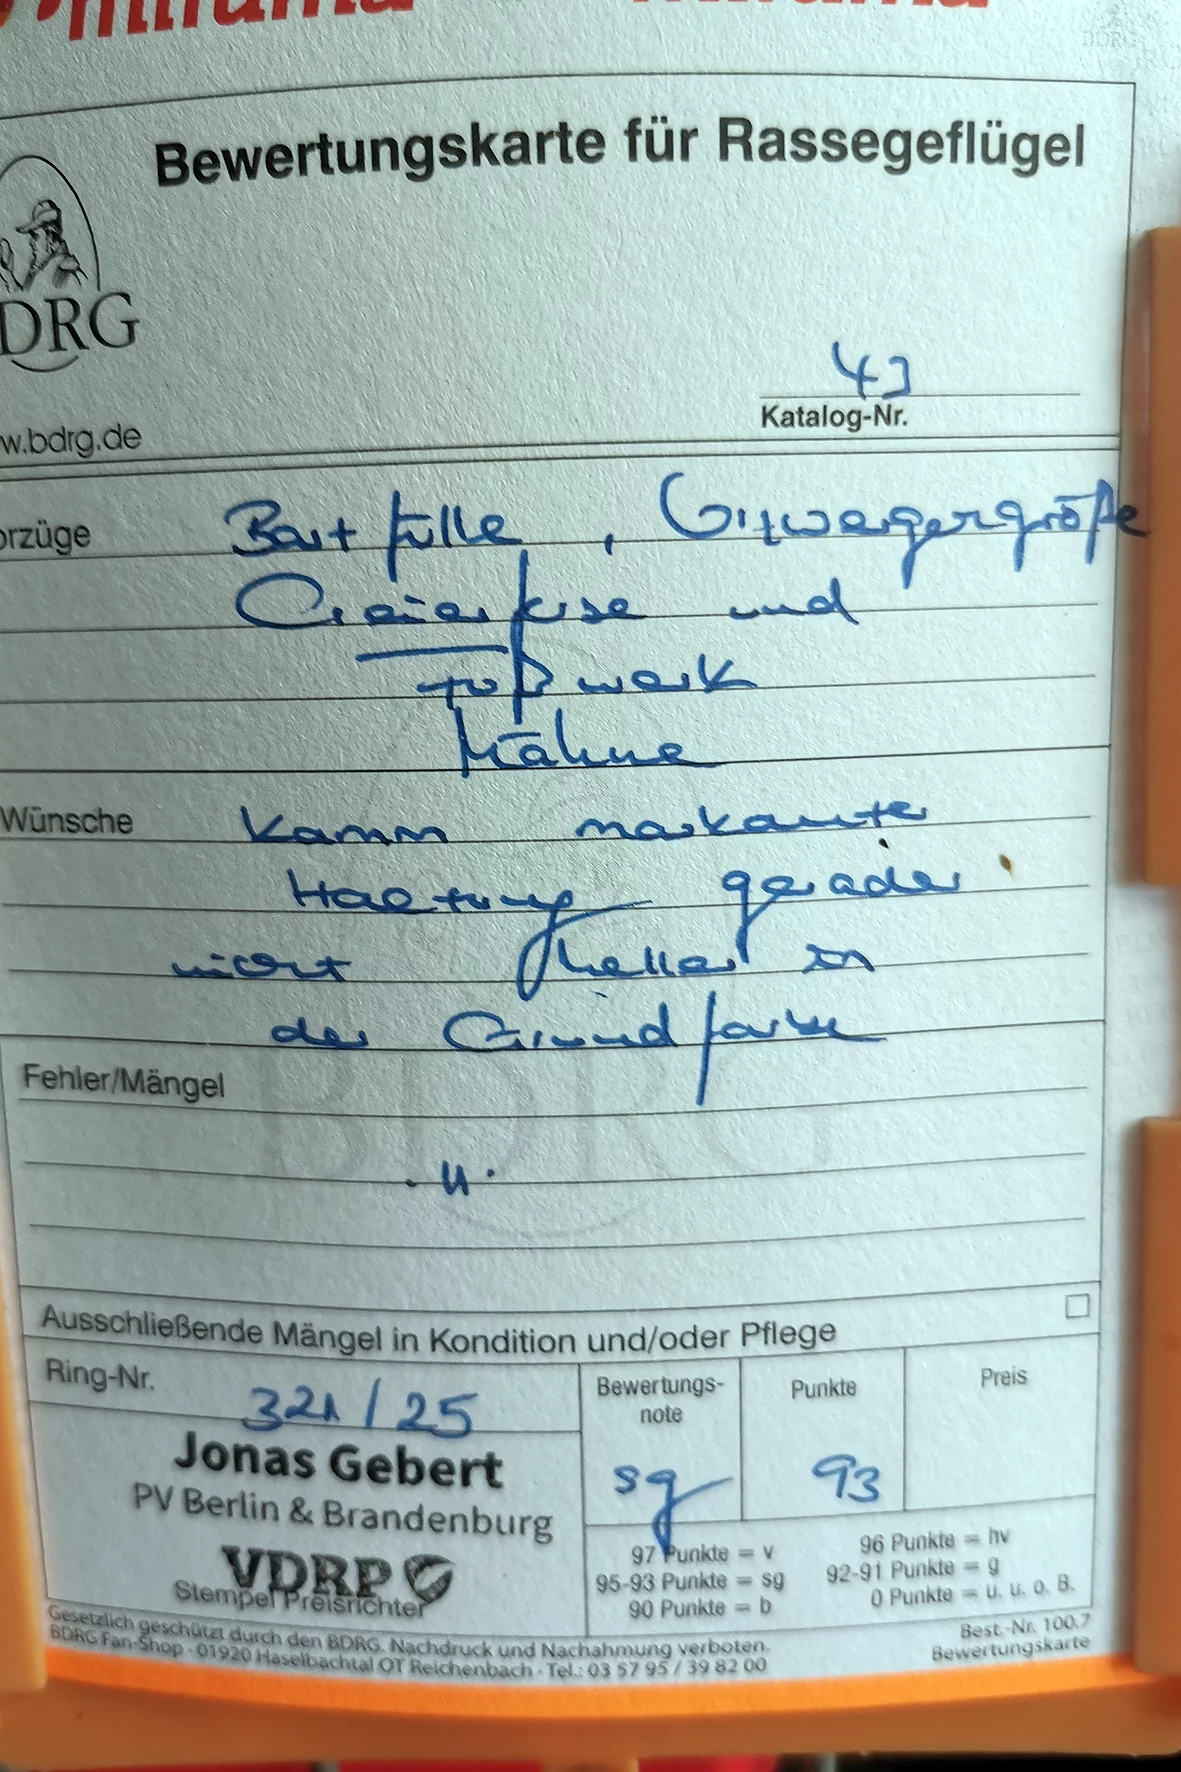 Bewertungskarte für Rassegeflügel
DRG
w.bdrg.de
43
Katalog-Nr.
orzüge Bart fülle,
und
Fußwerk
Mähne
Wünsche Kamm markanter
Haltung gerader
nicht heller in
der Grundfarbe
Fehler/Mängel
Ausschließende Mängel in Kondition und/oder Pflege
Ring-Nr. 321/25
Bewertungs-
note
sg
Punkte
93
Preis
Jonas Gebert
PV Berlin & Brandenburg
VDRP
Stempel Preisrichter
97 Punkte = v 96 Punkte = hv
95-93 Punkte = sg 92-91 Punkte = g
90 Punkte = b 0 Punkte = u. u. o. B.
Gesetzlich geschützt durch den BDRG. Nachdruck und Nachahmung verboten. Best.-Nr. 100.7
BDRG Fan-Shop · 01920 Haselbachtal OT Reichenbach · Tel.: 03 57 95 / 39 82 00 Bewertungskarte